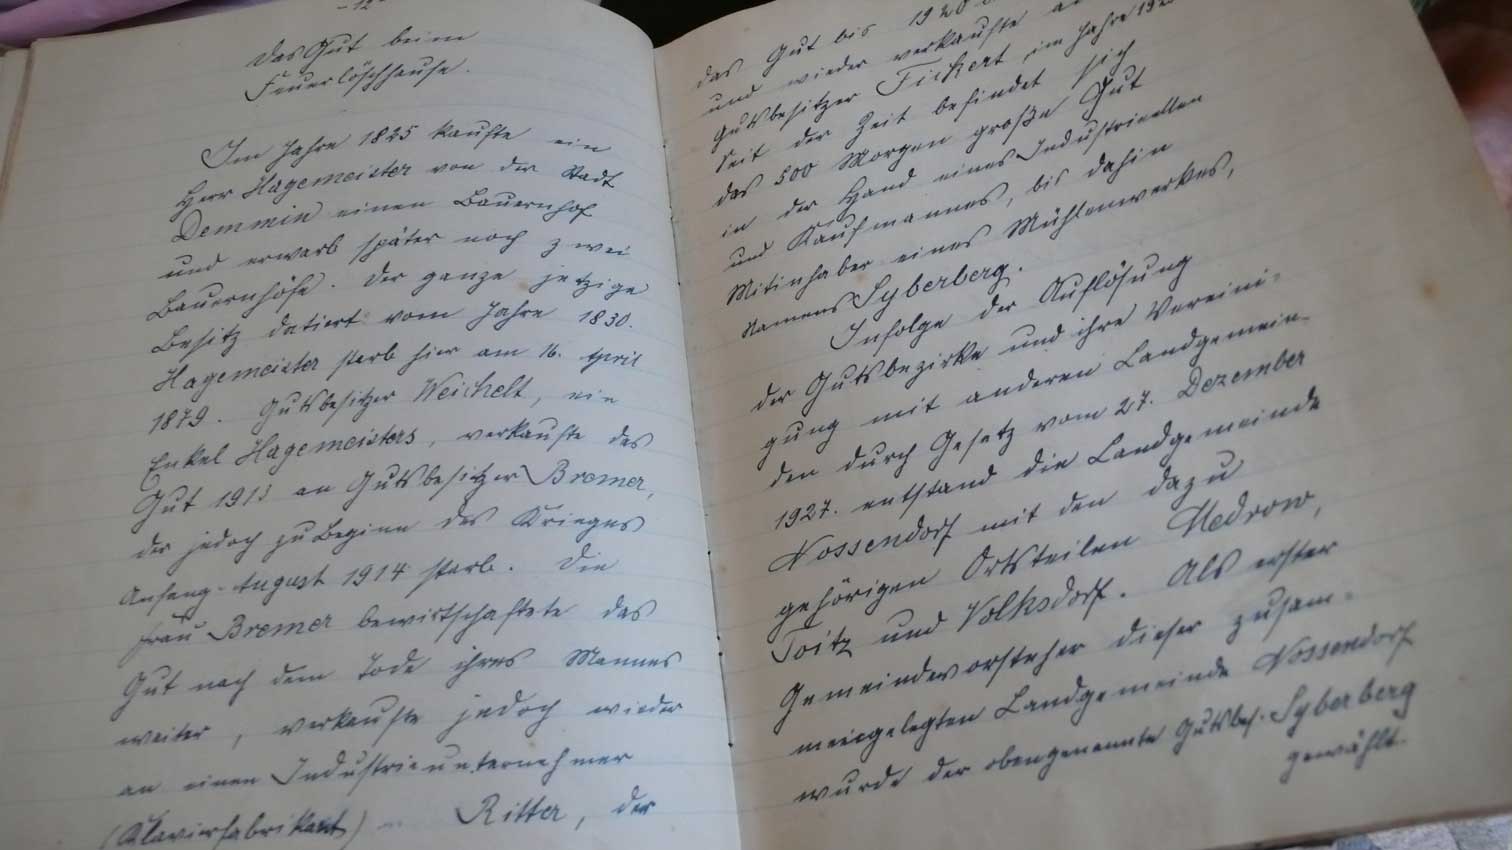 -12-
Das Gut beim
Feuerlöschhause.
Im Jahre 1825 kaufte ein
Herr Hagemeister von der Stadt
Demmin einen Bauernhof
und erwarb später noch zwei
Bauernhöfe. Der ganze jetzige
Besitz datiert vom Jahre 1830.
Hagemeister starb hier am 16. April
1879. Gutsbesitzer Weichelt, ein
Enkel Hagemeisters, verkaufte das
Gut 1913 an Gutsbesitzer Bremer,
der jedoch zu Beginn des Krieges
Anfang August 1914 starb. Die
Frau Bremer bewirtschaftete das
Gut nach dem Tode ihres Mannes
weiter, verkaufte jedoch wieder
an einen Industrieunternehmer
(Klavierfabrikant) Ritter, der
das Gut bis 1920
und wieder verkaufte an
Gutsbesitzer Fickert, im Jahre
Seit der Zeit befindet sich
das 500 Morgen große Gut
in der Hand eines Industriellen
und Kaufmannes, bis dahin
Mitinhaber eines Mühlenwerkes,
Namens Syberberg.
Infolge der Auflösung
der Gutsbezirke und ihre Vereini-
gung mit anderen Landgemein-
den durch Gesetz vom 27. Dezember
1927. entstand die Landgemeinde
Nossendorf mit den dazu
gehörigen Ortsteilen Medrow,
Toitz und Volksdorf. Als erster
Gemeindevorsteher dieser zusam-
mengelegten Landgemeinde Nossendorf
wurde der obengenannte Gutsbes. Syberberg
gewählt.